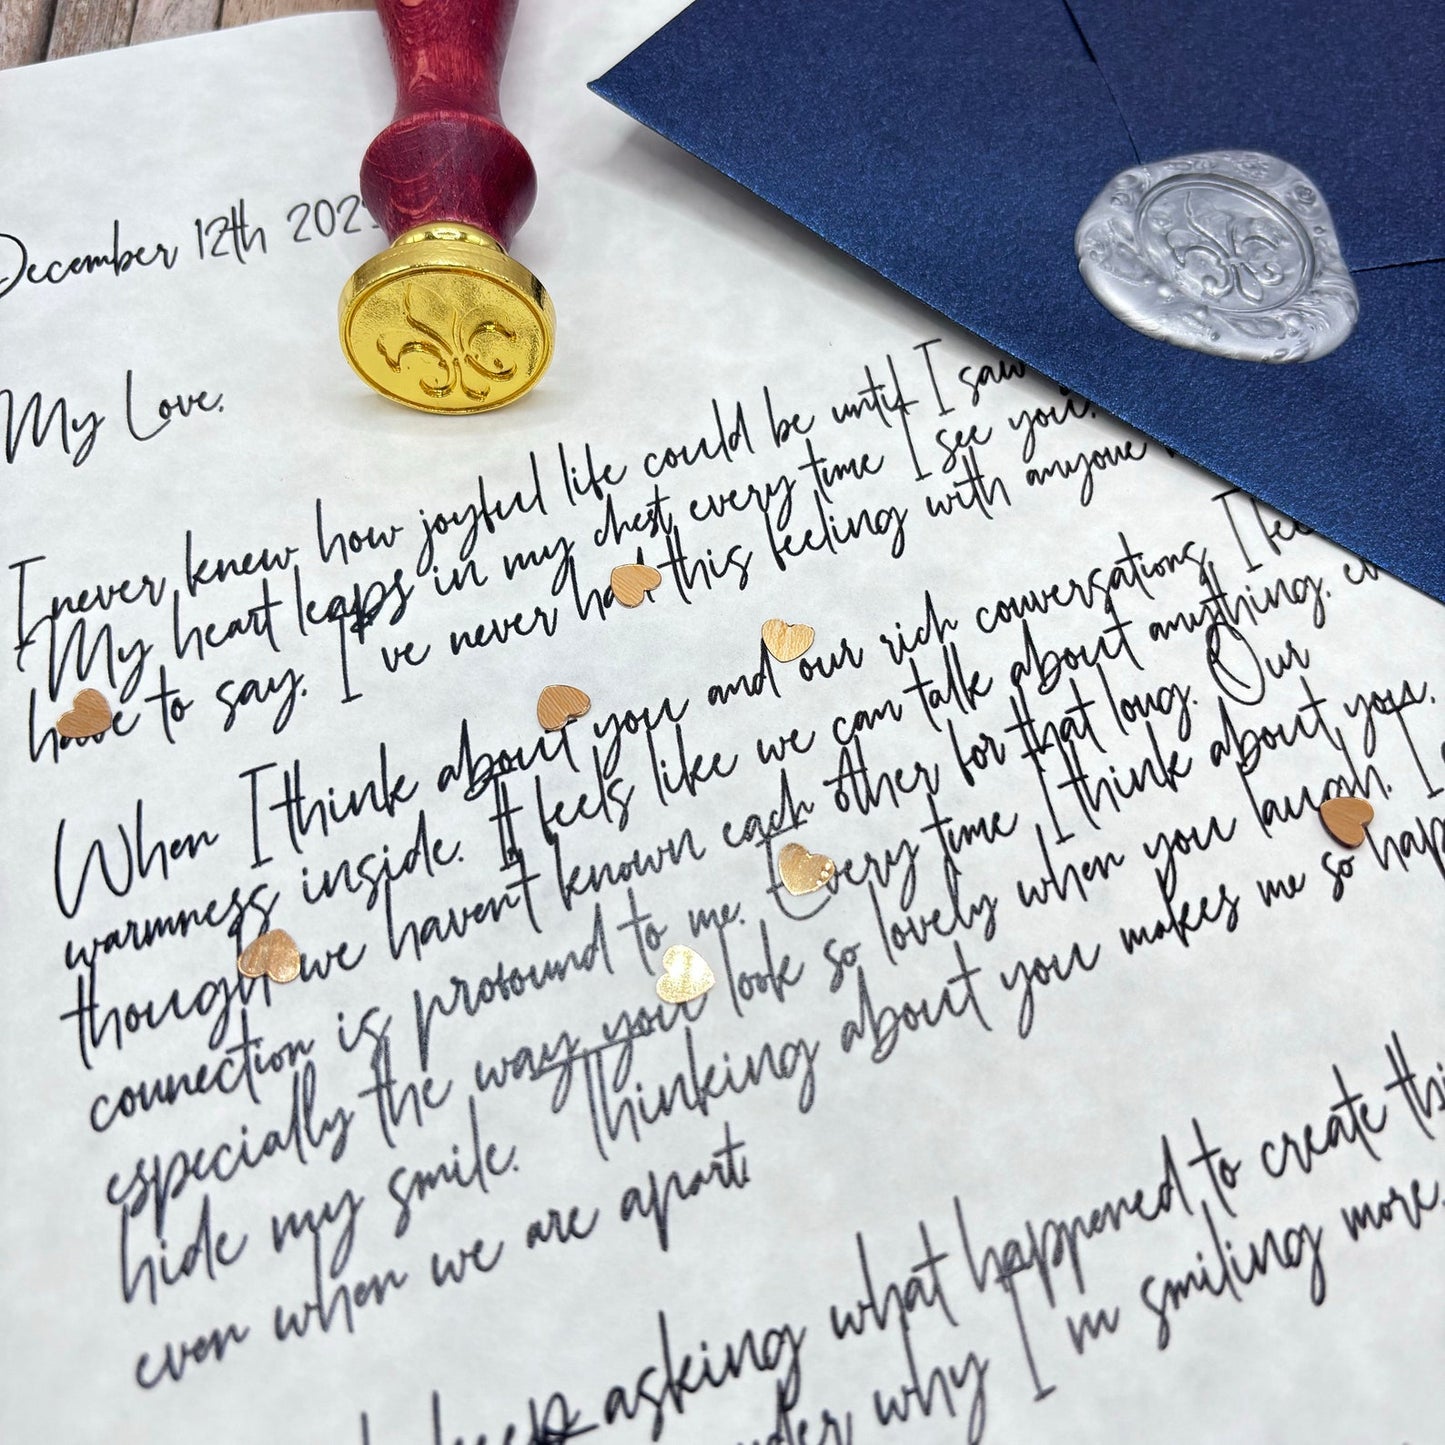 December 12th 202
My Love,
I never knew how joyful life could be until I saw
My heart leaps in my chest every time I see you.
have to say. I've never had this feeling with anyone
When I think about you and our rich conversations, I feel
warmness inside. It feels like we can talk about anything, ev
though we haven't known each other for that long. Our
connection is profound to me. Every time I think about you,
especially the way you look so lovely when you laugh. I
hide my smile. Thinking about you makes me so happ
even when we are apart.
keep asking what happened to create thi
why I'm smiling more.